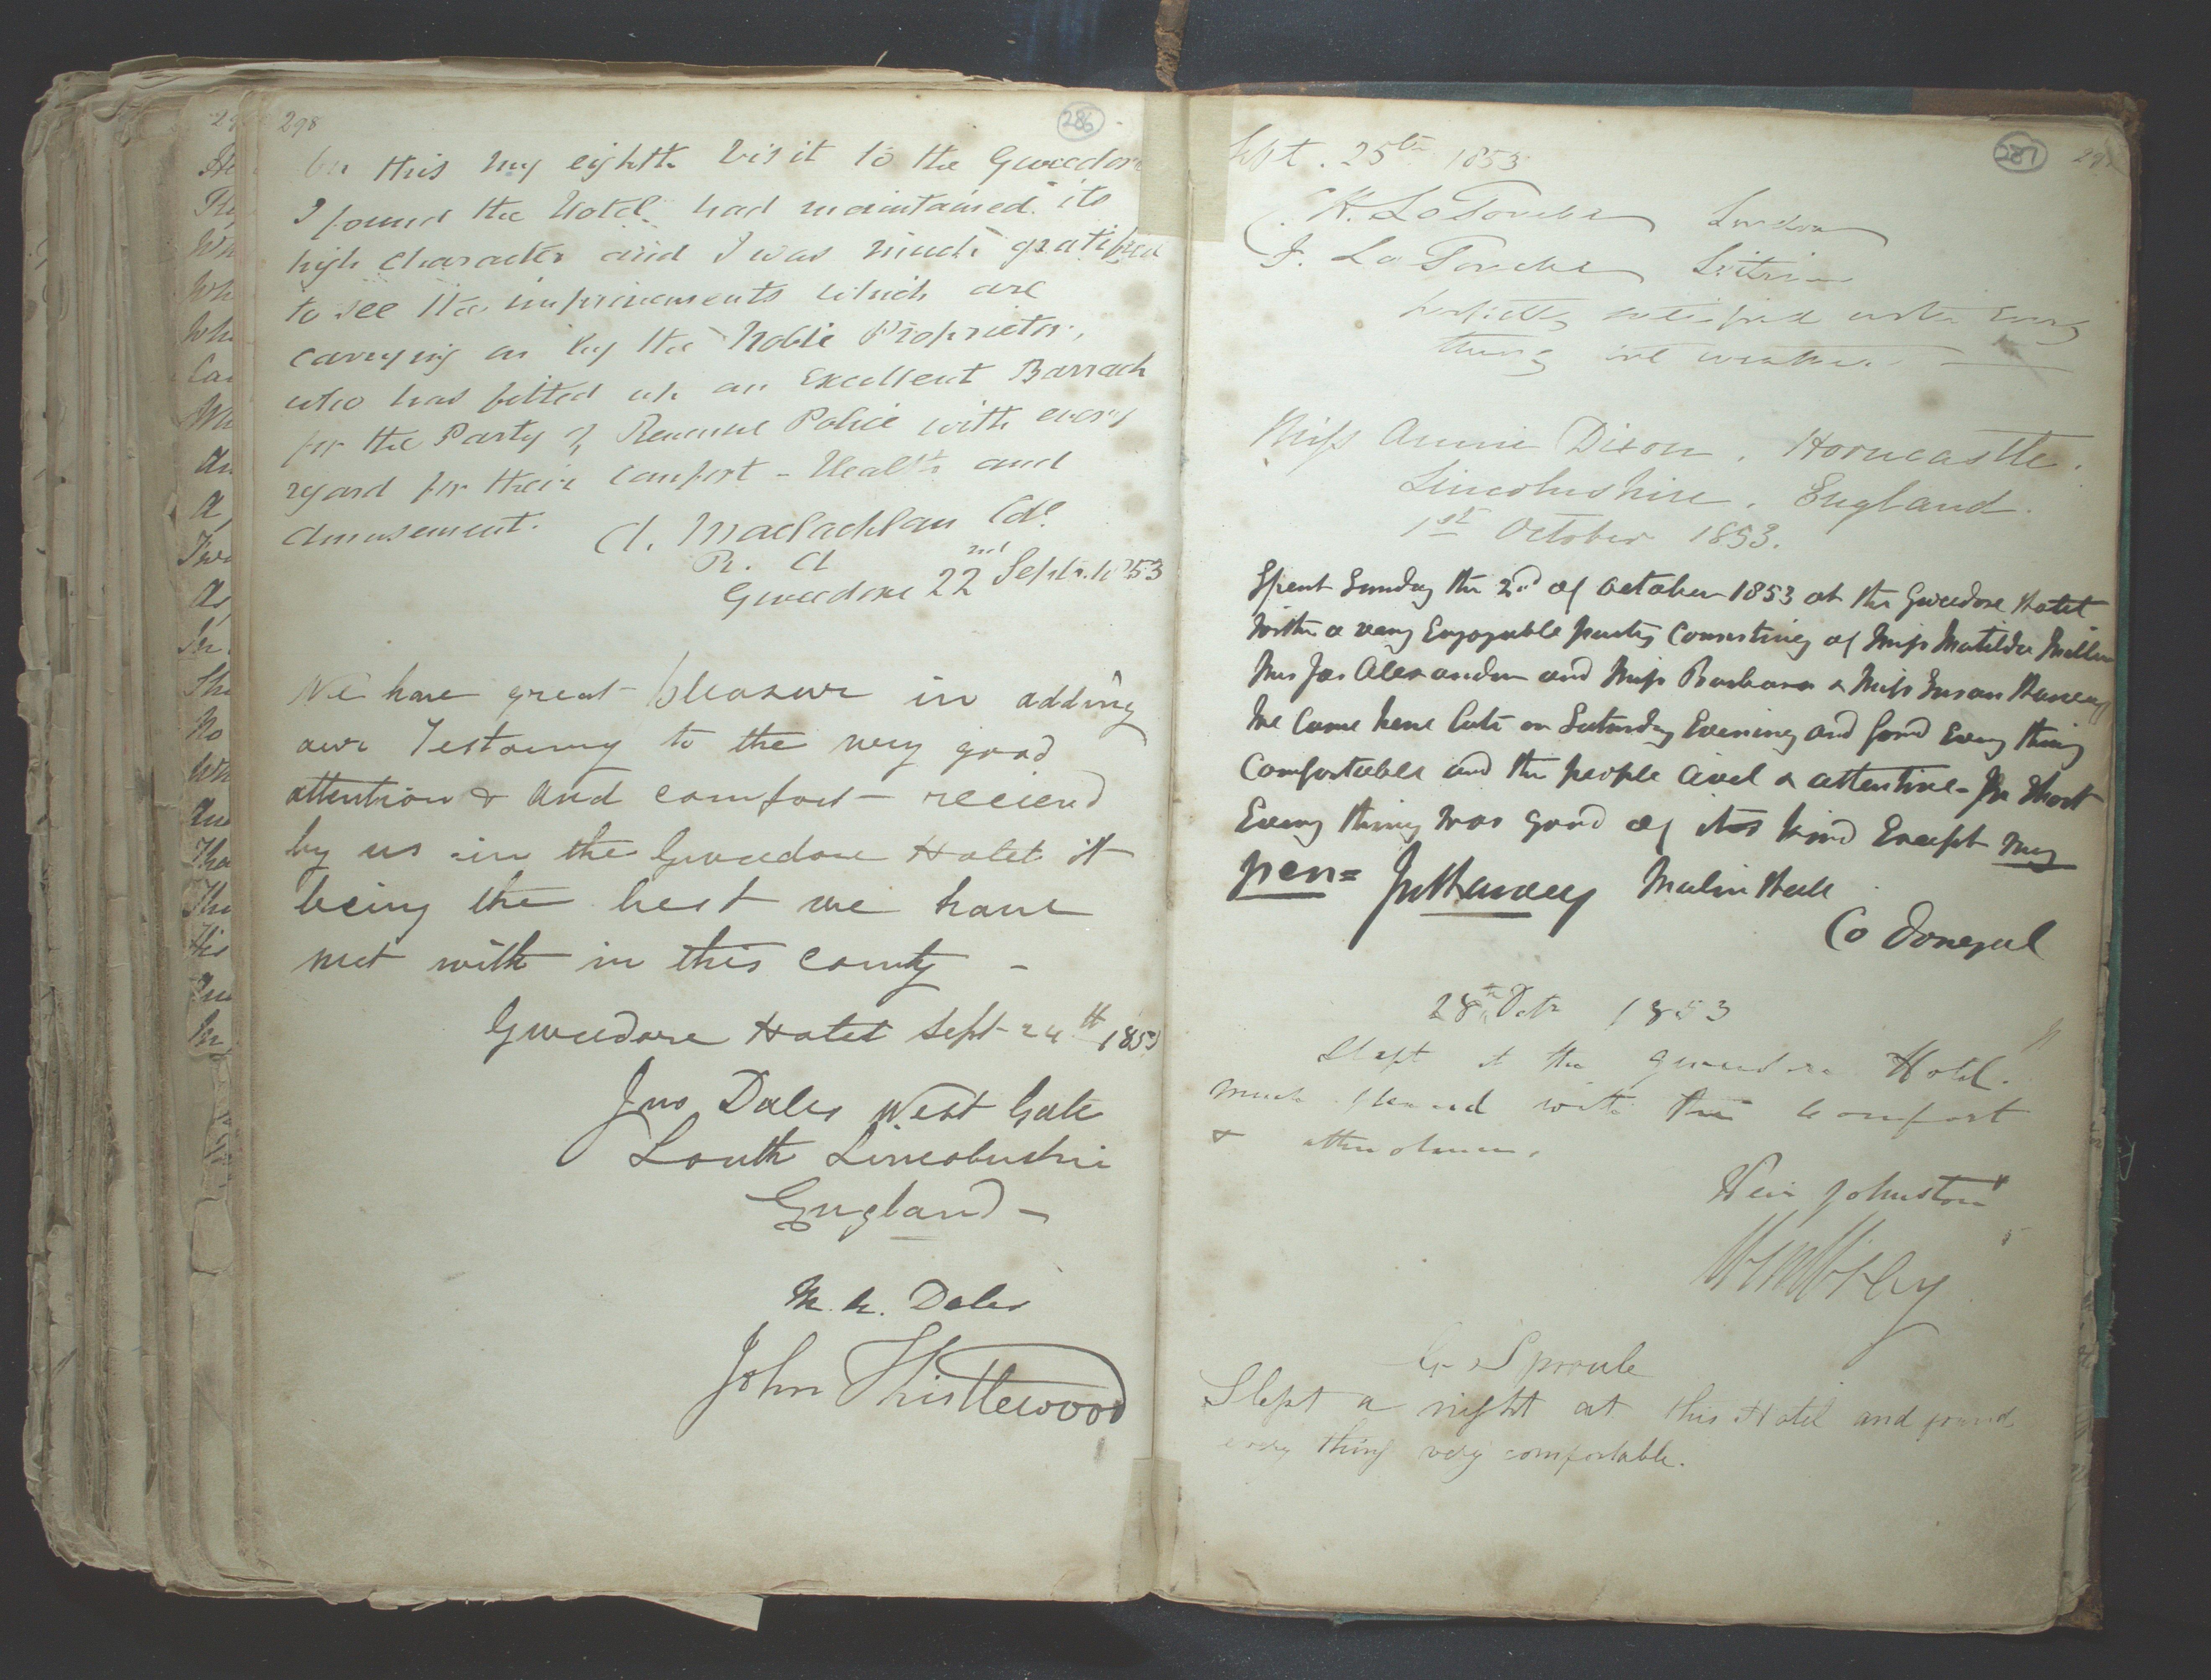 298
286
On this my eighth visit to the Gweedore
I found the Hotel had maintained its
high character and I was much gratified
to see the improvements which are
carrying on by the Noble Proprietor,
who has fitted up an Excellent Barrack
for the Party of Revenue Police with every
regard for their comfort - Health and
amusement.
A. Maclachlan Col.
R. A
Gweedore 22nd Septr. 1853
We have great pleasure in adding
our Testomny to the very good
attention & and comfort - recievd
by us in the Gweedore Hotel it
being the best we have
met with in this County -
Gweedore Hotel Sept 24th 1853
Jno Dales West Gate
Louth Lincolnshire
England -
M. A. Dales
John Thistlewood
287
Sept. 25th 1853
K. LaTouche London
J. LaTouche Leitrim
perfectly satisfied with every
thing
Miss Annie Dixon, Horncastle,
Lincolnshire, England.
1st October 1853.
Spent Sunday the 2nd of October 1853 at the Gweedore Hotel
with a very Enjoyable party Consisting of Miss Matilda Miller
Mrs Jas Alexander and Miss Barbara & Miss Susan Harvey
We Came here late on Saturday Evening and found Every thing
Comfortable and the people Civil & attentive - In Short
Every thing was good of its kind Except my
pen = Jn Harvey Malin Hall
Co Donegal
28th 1853
Slept at the Gweedore Hotel.
much pleased with the comfort
& attendance.
Johnston
G Sproule
Slept a night at this Hotel and found
every thing very comfortable.